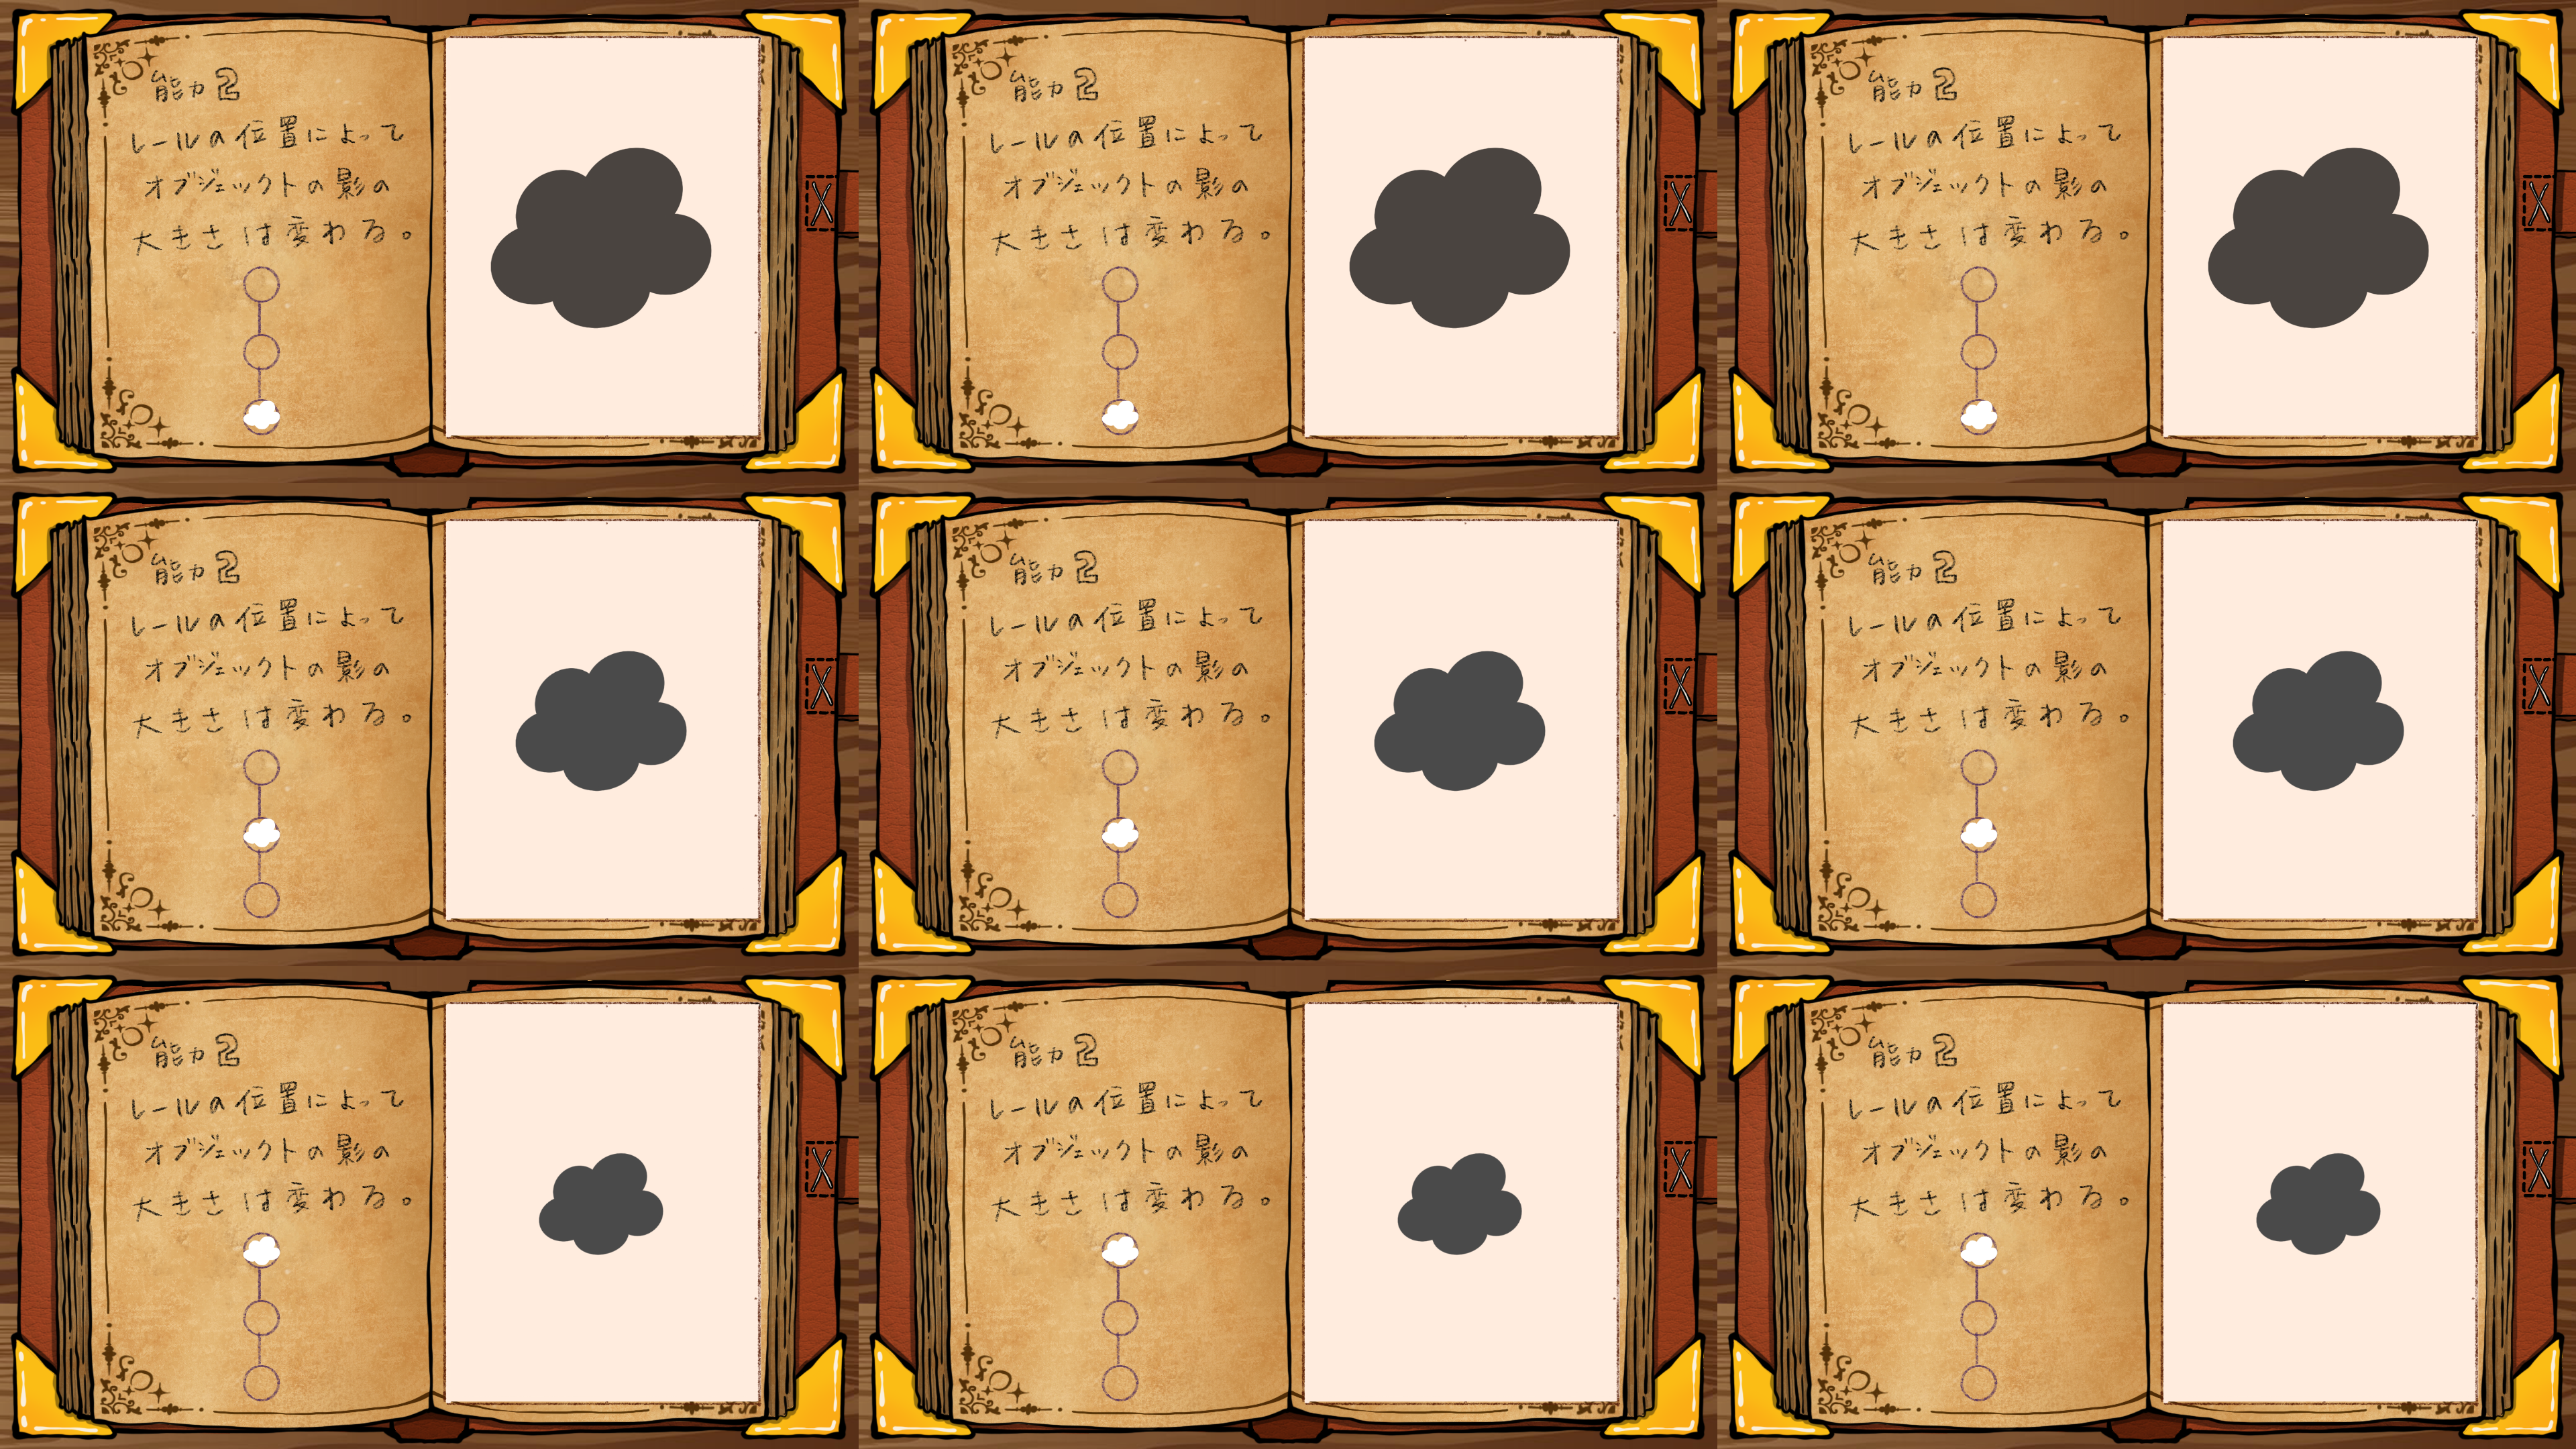 能力2
レールの位置によって
オブジェクトの影の
大きさは変わる。
能力2
レールの位置によって
オブジェクトの影の
大きさは変わる。
能力2
レールの位置によって
オブジェクトの影の
大きさは変わる。
能力2
レールの位置によって
オブジェクトの影の
大きさは変わる。
能力2
レールの位置によって
オブジェクトの影の
大きさは変わる。
能力2
レールの位置によって
オブジェクトの影の
大きさは変わる。
能力2
レールの位置によって
オブジェクトの影の
大きさは変わる。
能力2
レールの位置によって
オブジェクトの影の
大きさは変わる。
能力2
レールの位置によって
オブジェクトの影の
大きさは変わる。